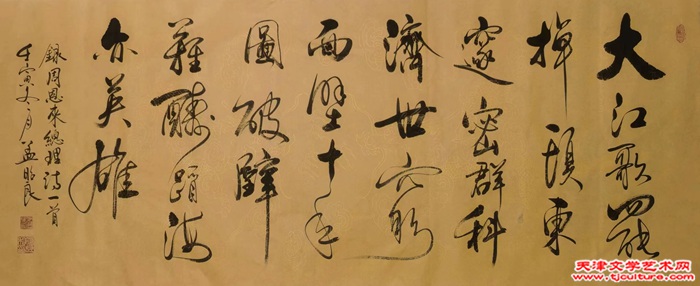 大江歌罷
掉頭東
邃密群科
濟世窮
面壁十年
圖破壁
難酬蹈海
亦英雄
錄周恩來總理詩一首
壬寅冬月孟昭良
天津文学艺术网
www.tjculture.com